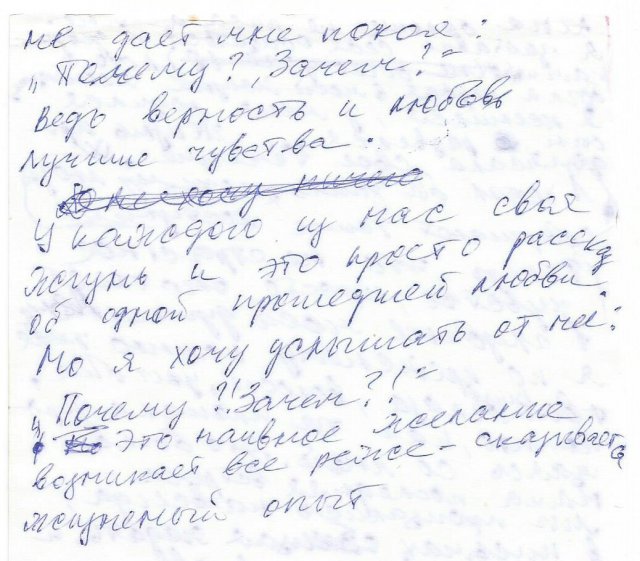 не дает мне покоя:
„Почему?, Зачем?“
Ведь верность и любовь
лучшие чувства.
Я не хочу ничего
У каждого из нас своя
жизнь и это просто рассказ
об одной прошедшей любви.
Но я хочу услышать от неё:
„Почему?! Зачем?!“
Это наивное желание
возникает все реже - сказывается
жизненый опыт